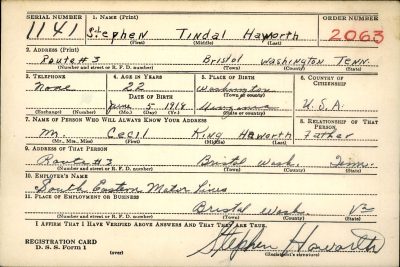 SERIAL NUMBER 1. NAME (Print) ORDER NUMBER
1141 Stephen Tindal Haworth 2063
(First) (Middle) (Last)
2. ADDRESS (Print)
Route #3 Bristol Washington Tenn.
(Number and street or R. F. D. number) (Town) (County) (State)
3. TELEPHONE 4. AGE IN YEARS 5. PLACE OF BIRTH 6. COUNTRY OF CITIZENSHIP
None 22 Washington
DATE OF BIRTH (Town or county)
June 5 1918 Virginia U.S.A.
(Exchange) (Number) (Mo.) (Day) (Yr.) (State or country)
7. NAME OF PERSON WHO WILL ALWAYS KNOW YOUR ADDRESS 8. RELATIONSHIP OF THAT PERSON
Mr. Cecil King Haworth Father
(Mr., Mrs., Miss) (First) (Middle) (Last)
9. ADDRESS OF THAT PERSON
Route #3 Bristol Wash. Tenn.
(Number and street or R. F. D. number) (Town) (County) (State)
10. EMPLOYER'S NAME
South Eastern Motor Lines
11. PLACE OF EMPLOYMENT OR BUSINESS
Bristol Wash. Va
(Number and street or R. F. D. number) (Town) (County) (State)
I AFFIRM THAT I HAVE VERIFIED ABOVE ANSWERS AND THAT THEY ARE TRUE.
REGISTRATION CARD
D. S. S. Form 1 (over) Stephen Haworth
(Registrant's signature)